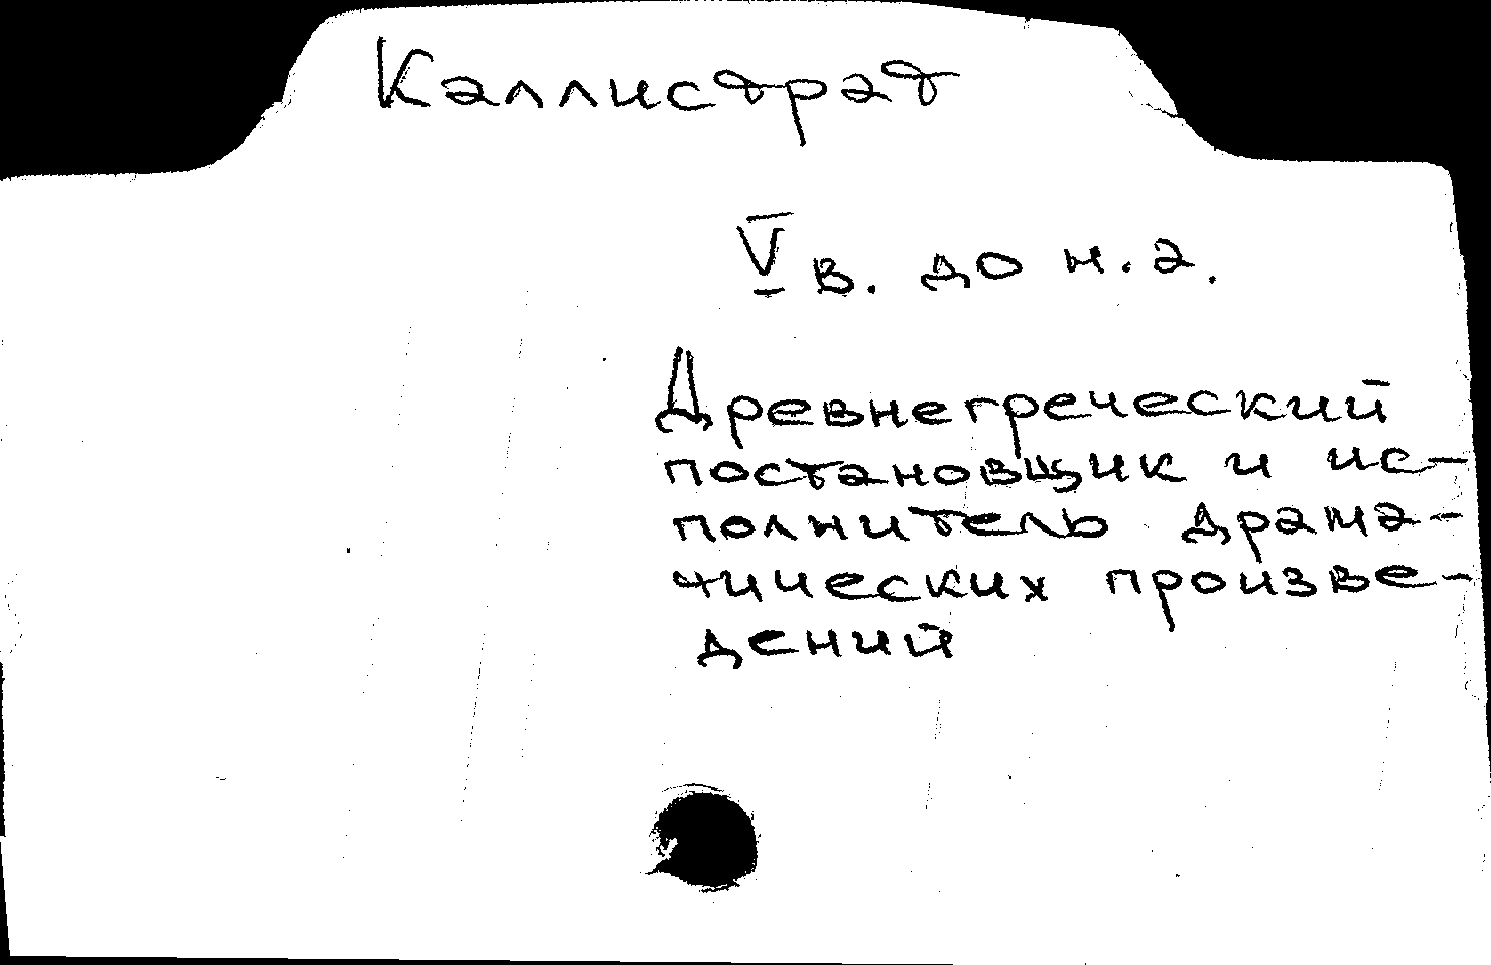 Каллистрат
V в. до н.э.
Древнегреческий
постановщик и ис-
полнитель драма-
тических произве-
дений